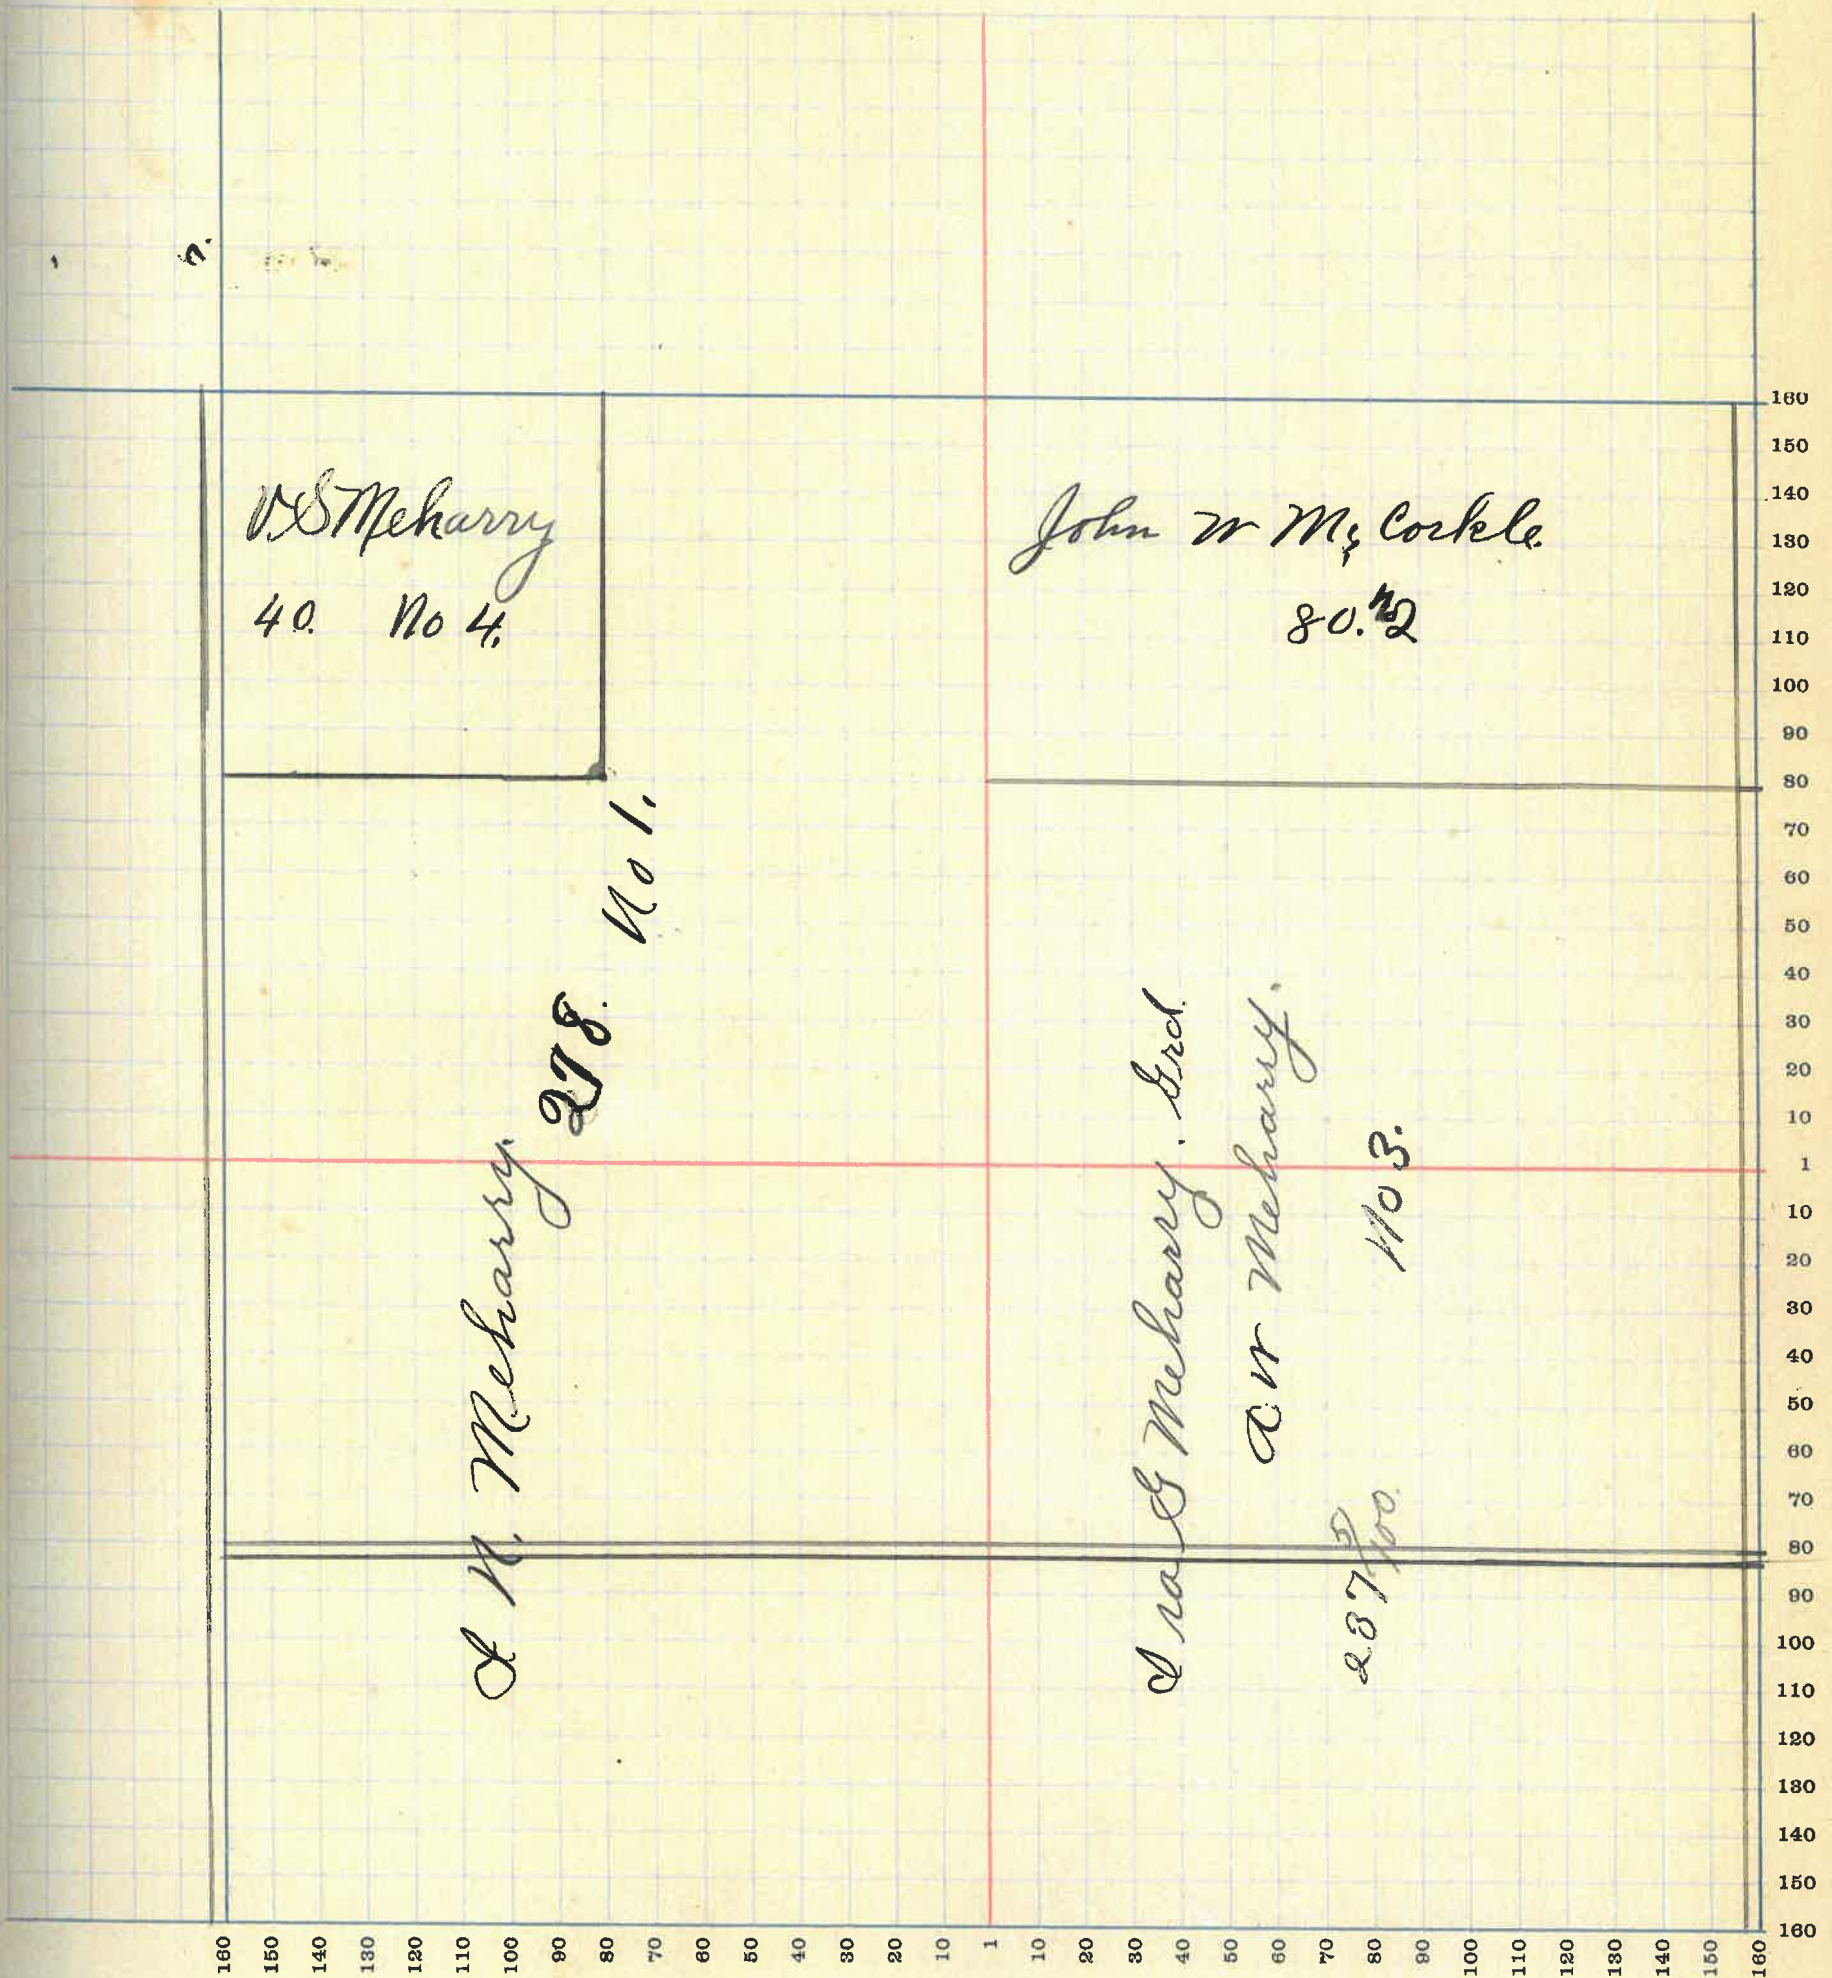 V.S Meharry
40. No 4.
John W Mc Corkle.
80. No 2
No 1.
278.
N. Meharry.
Ira G Meharry. Grd.
A W Meharry.
No 3.
237 5/100.
160
150
140
130
120
110
100
90
80
70
60
50
40
30
20
10
1
10
20
30
40
50
60
70
80
90
100
110
120
130
140
150
160
160 150 140 130 120 110 100 90 80 70 60 50 40 30 20 10 1 10 20 30 40 50 60 70 80 90 100 110 120 130 140 150 160